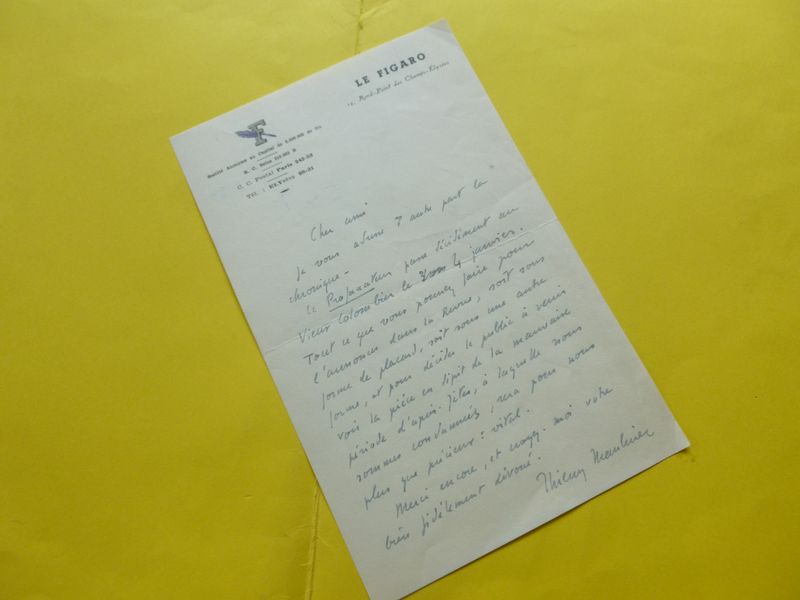 LE FIGARO
14, Rond-Point des Champs-Elysées
F
Société Anonyme au Capital de
R. C. Seine
C. C. Postal Paris 242-53
Tél. : ELYsées 98-31
Cher ami
Je vous adresse d'autre part la
chronique.
Le Profanateur passe décidément au
Vieux Colombier le 4 janvier.
Tout ce que vous pourrez faire pour
l'annoncer dans la Revue, soit sous
forme de placard, soit sous une autre
forme, et pour décider le public à venir
voir la pièce en dépit de la mauvaise
période d'après-fêtes, à laquelle nous
sommes condamnés, sera pour nous
plus que précieux : vital.
Merci encore, et croyez-moi votre
bien fidèlement dévoué.
Thierry Maulnier